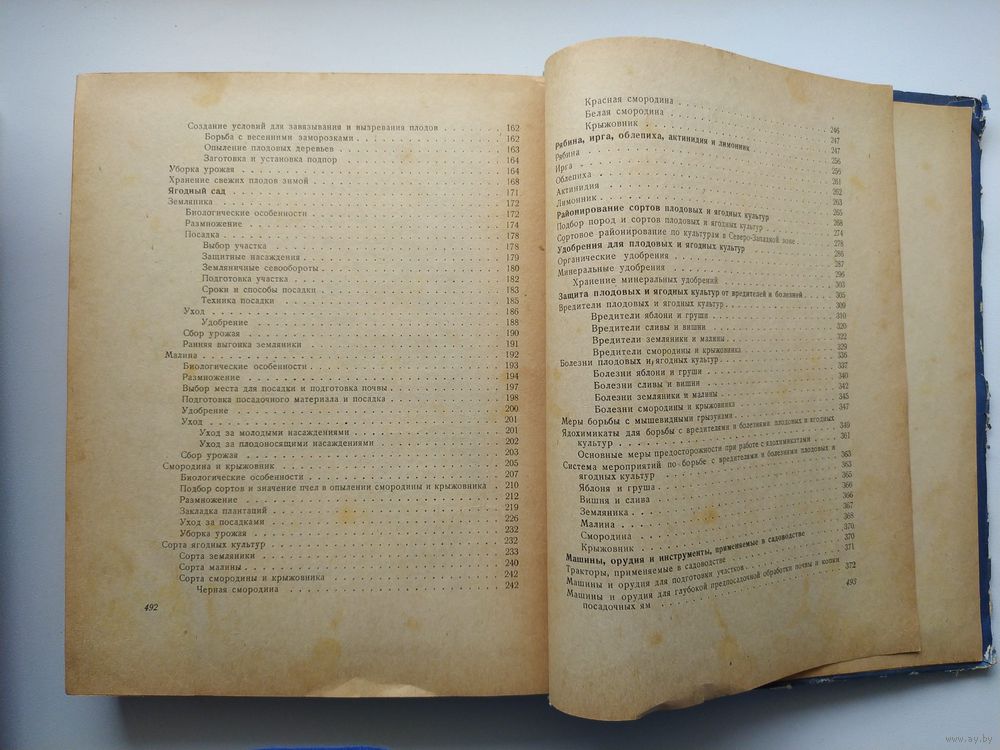 Создание условий для завязывания и вызревания плодов . . . 162
Борьба с весенними заморозками . . . 162
Опыление плодовых деревьев . . . 163
Заготовка и установка подпор . . . 164
Уборка урожая . . . 164
Хранение свежих плодов зимой . . . 168
Ягодный сад . . . 171
Земляника . . . 172
Биологические особенности . . . 172
Размножение . . . 174
Посадка . . . 178
Выбор участка . . . 178
Защитные насаждения . . . 179
Земляничные севообороты . . . 180
Подготовка участка . . . 182
Сроки и способы посадки . . . 183
Техника посадки . . . 185
Уход . . . 186
Удобрение . . . 188
Сбор урожая . . . 190
Ранняя выгонка земляники . . . 191
Малина . . . 192
Биологические особенности . . . 193
Размножение . . . 194
Выбор места для посадки и подготовка почвы . . . 197
Подготовка посадочного материала и посадка . . . 198
Удобрение . . . 200
Уход . . . 201
Уход за молодыми насаждениями . . . 201
Уход за плодоносящими насаждениями . . . 202
Сбор урожая . . . 203
Смородина и крыжовник . . . 205
Биологические особенности . . . 207
Подбор сортов и значение пчел в опылении смородины и крыжовника . 210
Размножение . . . 212
Закладка плантаций . . . 219
Уход за посадками . . . 226
Уборка урожая . . . 232
Сорта ягодных культур . . . 232
Сорта земляники . . . 233
Сорта малины . . . 240
Сорта смородины и крыжовника . . . 242
Черная смородина . . . 242
492
Красная смородина . . . 246
Белая смородина . . . 247
Крыжовник . . . 247
Рябина, ирга, облепиха, актинидия и лимонник . . . 256
Рябина . . . 256
Ирга . . . 261
Облепиха . . . 262
Актинидия . . . 263
Лимонник . . . 265
Районирование сортов плодовых и ягодных культур . . . 268
Подбор пород и сортов плодовых и ягодных культур . . . 274
Сортовое районирование по культурам в Северо-Западной зоне . . . 278
Удобрения для плодовых и ягодных культур . . . 286
Органические удобрения . . . 287
Минеральные удобрения . . . 296
Хранение минеральных удобрений . . . 303
Защита плодовых и ягодных культур от вредителей и болезней . . . 305
Вредители плодовых и ягодных культур . . . 309
Вредители яблони и груши . . . 310
Вредители сливы и вишни . . . 320
Вредители земляники и малины . . . 322
Вредители смородины и крыжовника . . . 329
Болезни плодовых и ягодных культур . . . 336
Болезни яблони и груши . . . 337
Болезни сливы и вишни . . . 340
Болезни земляники и малины . . . 342
Болезни смородины и крыжовника . . . 345
Меры борьбы с мышевидными грызунами . . . 347
Ядохимикаты для борьбы с вредителями и болезнями плодовых и ягодных
культур . . . 349
Основные меры предосторожности при работе с ядохимикатами . . . 361
Система мероприятий по борьбе с вредителями и болезнями плодовых и
ягодных культур . . . 363
Яблоня и груша . . . 363
Вишня и слива . . . 365
Земляника . . . 366
Малина . . . 366
Смородина . . . 367
Крыжовник . . . 368
Машины, орудия и инструменты, применяемые в садоводстве . . . 370
Тракторы, применяемые в садоводстве . . . 370
Машины и орудия для подготовки участков . . . 371
Машины и орудия для глубокой предпосадочной обработки почвы и копки
посадочных ям . . . 372
493
www.ay.by